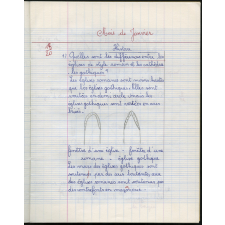 Mois de Janvier
Histoire
1) Quelles sont les différences entre les
églises de style roman et les cathédra
les gothiques?
Les églises romanes sont moins hautes
que les églises gothiques. Elles sont
voûtées en demi cercle mais les
églises gothiques sont voûtées en arc
brisé.
fenêtre d'une église - fenêtre d'une
romane. église gothique
Les murs des églises gothiques sont
soutenus par des arcs boutants, ceux
des églises romanes sont soutenus par
des contreforts en maçonnerie.